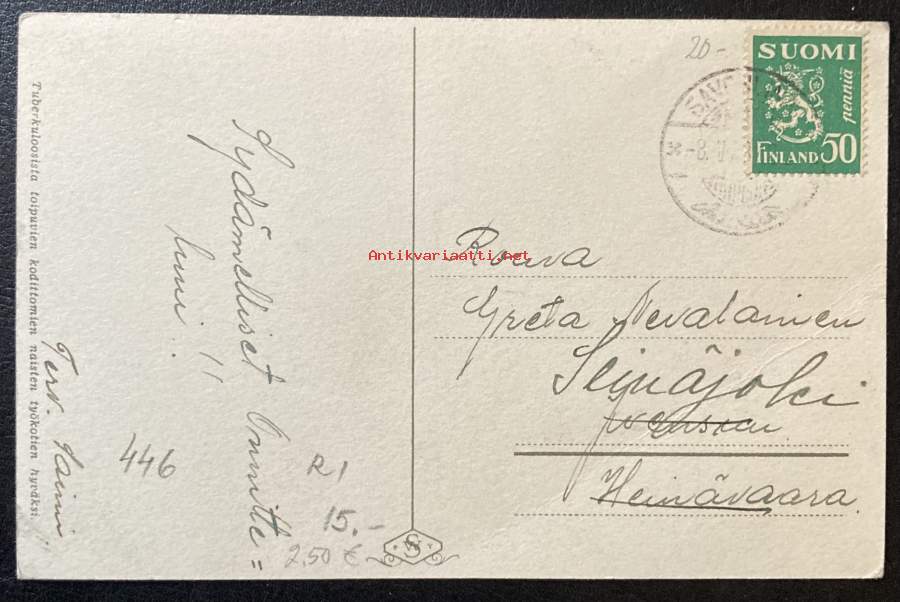 Tuberkuloosista toipuvien kodittomien naisten työkotien hyväksi.
Sydämelliset Onnitte=
lut
Terv. Saimi
446
R 1
15.-
2.50 €
20-
SUOMI
50 penniä
FINLAND
-8.
Antikvariaatti.net
Rouva
Greta Nevalainen
Seinäjoki
Heinävaara